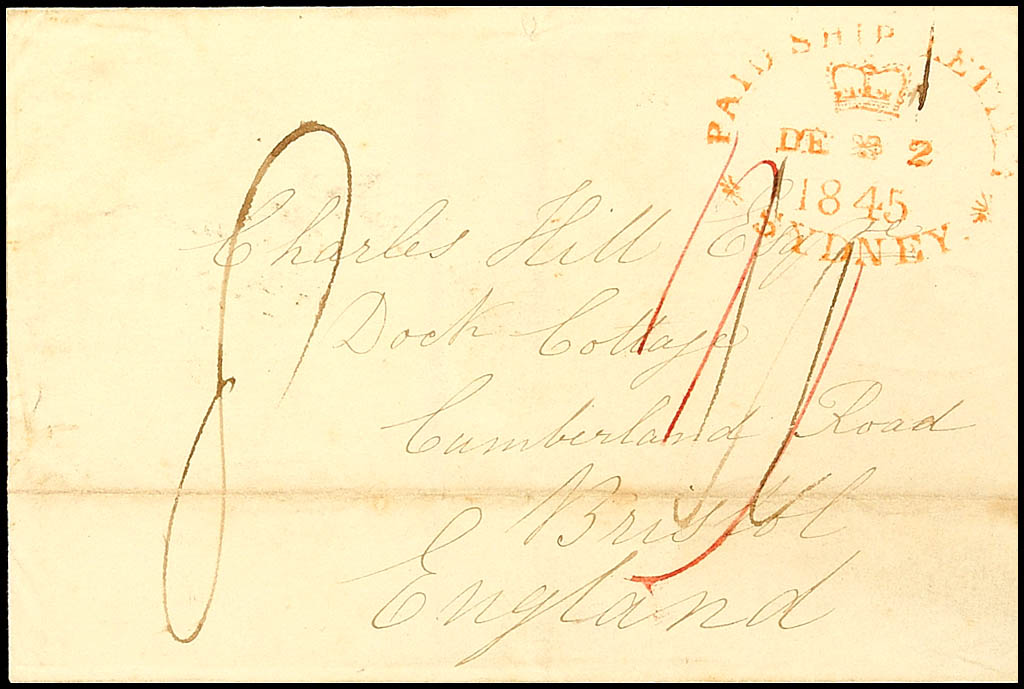 PAID SHIP LETTER
DE 2
1845
SYDNEY
8
Charles Hill Esqre
Dock Cottage
Cumberland Road
Bristol
England